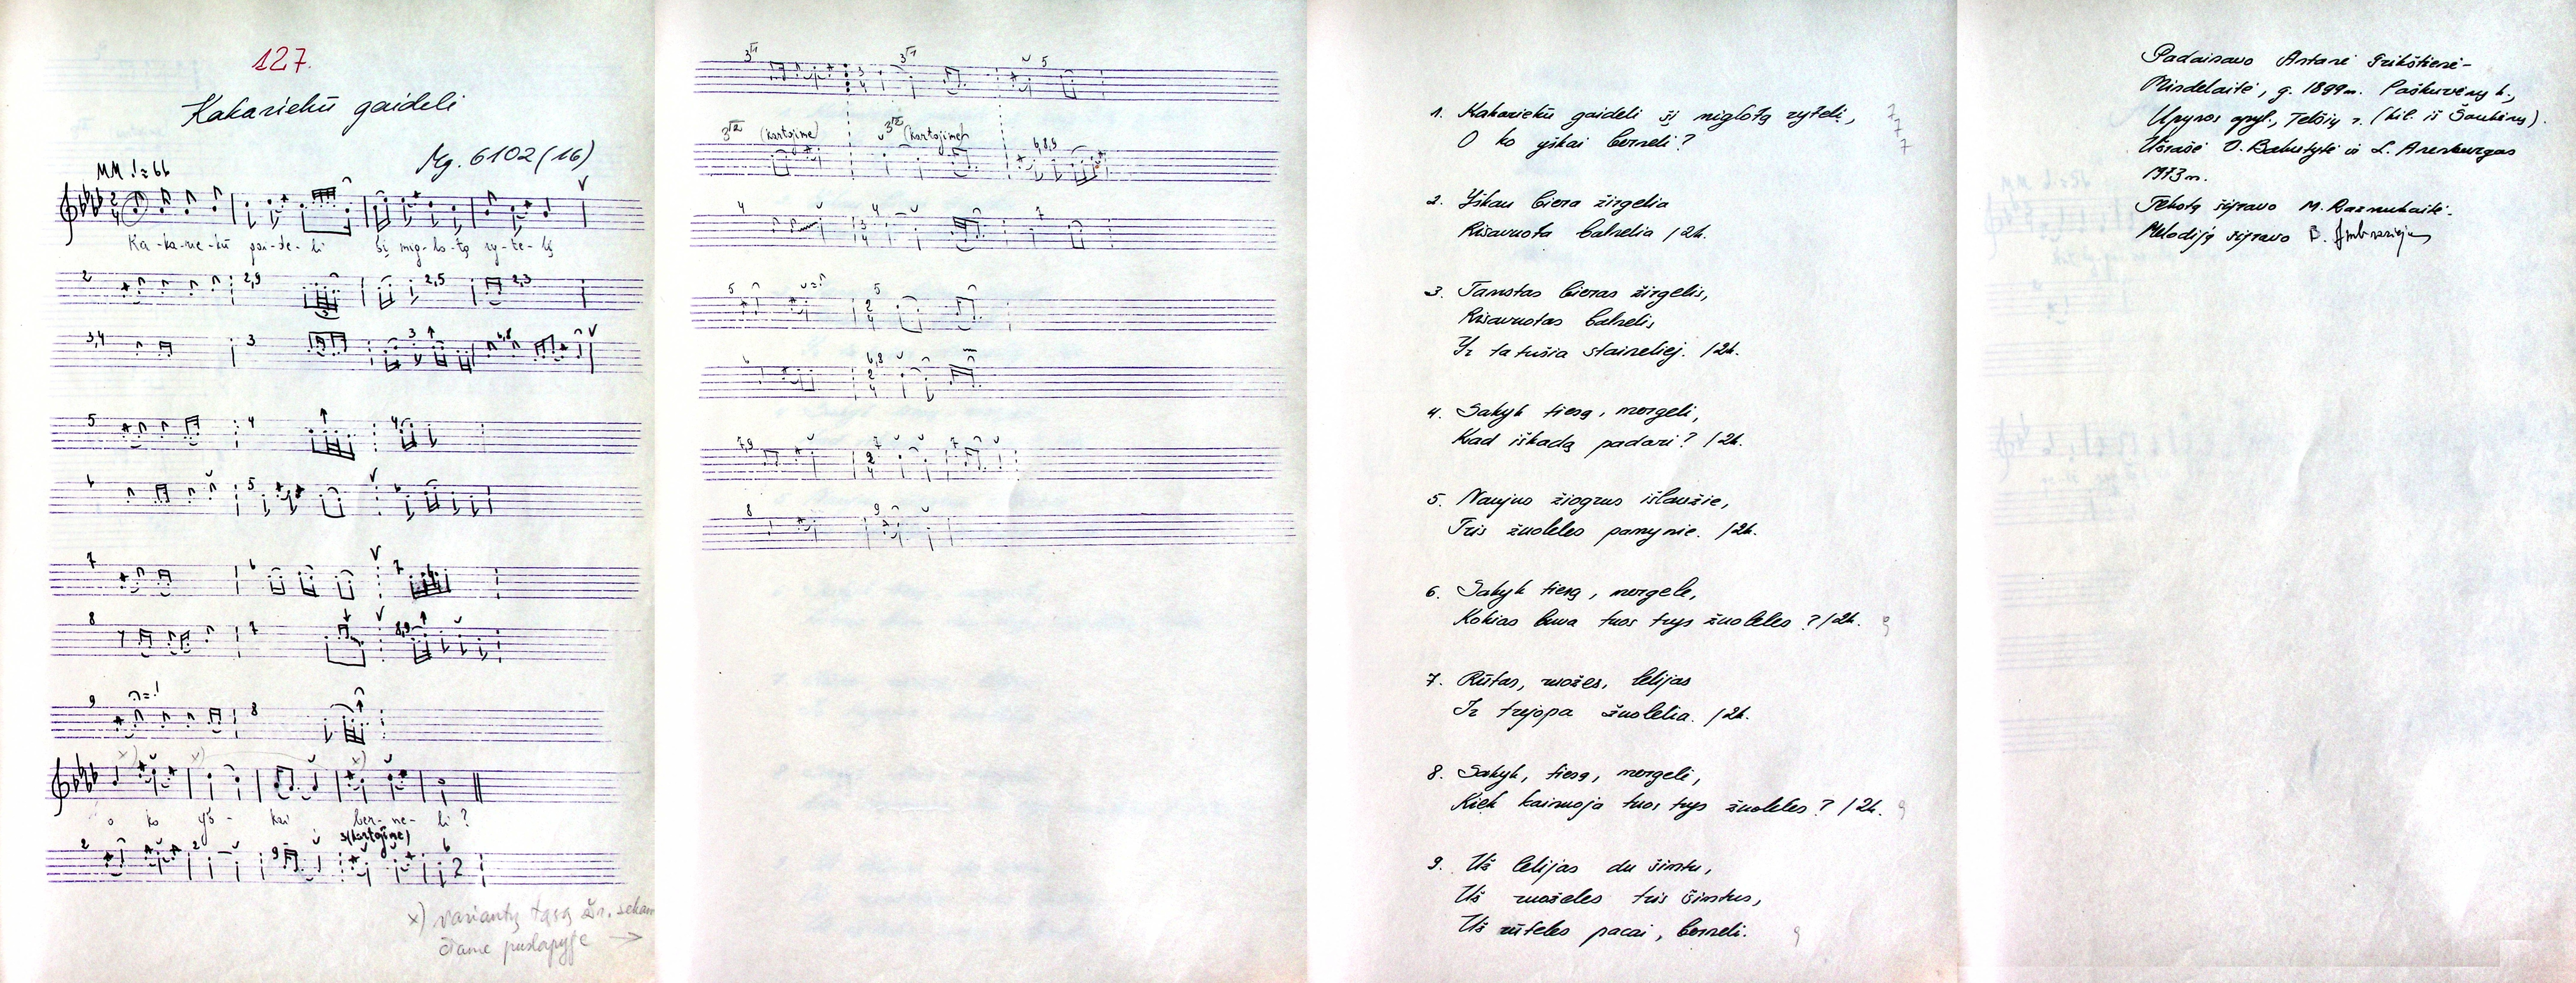 127.
Kakariekū gaideli
Mg. 6102 (16)
MM ♩= 66
Ka-ka-rie-kū gai-de-li šį mig-lo-tą ry-te-lį
2 2,9 2,5 2,3
3,4 3 3
5 4 4
6 5 6
7 6 7
8 7 8,9
9 8
x) x) x)
o ko yš- kai ber-ne-li?
3(kartojime)
2 2 9 6
x) variantų tąsą žr. sekan
čiame puslapyje →
3/1 3/1 5
3/2 (kartojime) 3/2 (kartojime) 6,8,9
4 4 7
5 5
6 6,8
7,9 7 7
8 9
1. Kakariekū gaideli šį miglotą rytelį,
O ko yškai berneli?
2. Yškau biera žirgelia
Kisavuota balnelia /2k.
3. Tamstas bieras žirgelis,
Kisavuotas balnelis
Yr tatušia staineliej. /2k.
4. Sakyk tiesą, mergeli,
Kad iškadą padari? /2k.
5. Naujus žiogrus išlaužie,
Tris žuoleles pamynie. /2k.
6. Sakyk tiesą, mergele,
Kokias buva tuos trys žuoleles? /2k.
7. Rūtas, ružes, lelijas
Ir trejopa žuolelia. /2k.
8. Sakyk, tiesą, mergeli,
Kiek kainuoja tuos trys žuoleles? /2k.
9. Už lelijas du šimtu,
Už ruželes tris šimtus,
Už rūteles pacai, berneli.
Padainavo Antanė Grikštienė-
Mindelaitė, g. 1899 m. Paškuvėnų k.,
Upynos apyl., Telšių r. (kil. iš Šaukėnų).
Užrašė O. Bakutytė ir L. Arenburgas
1973 m.
Tekstą šifravo M. Razmukaitė.
Melodiją šifravo B. Ambraziejus